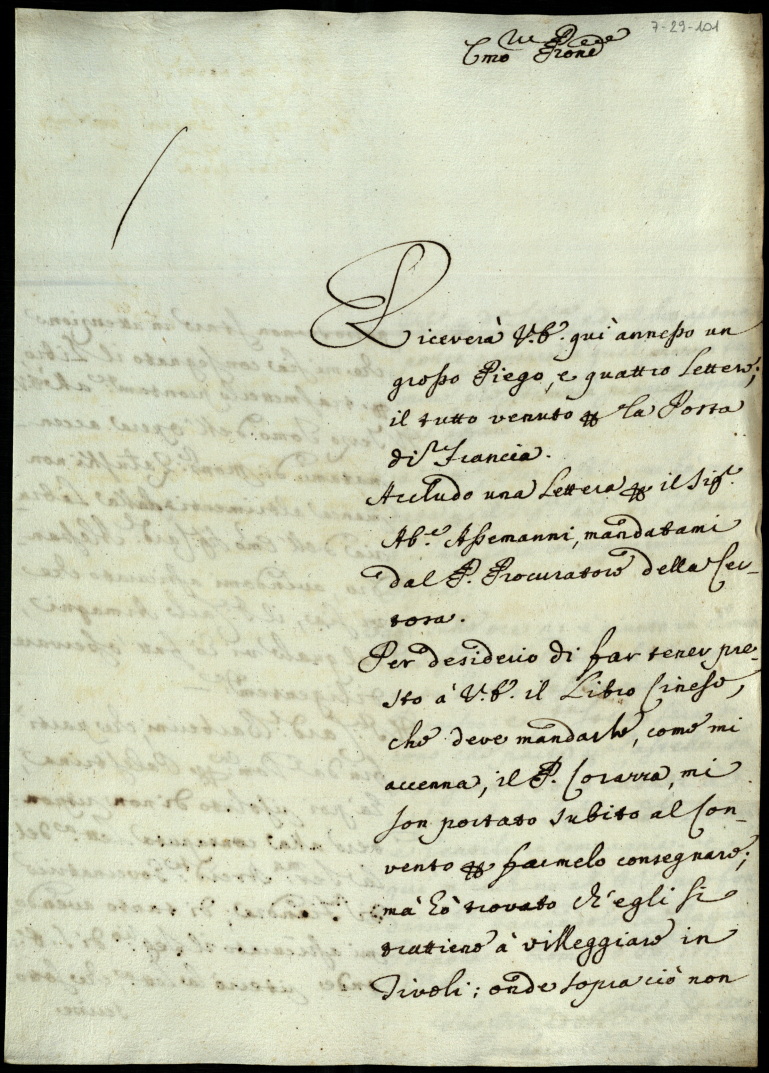 7-29-101
Emo Prone
Riceverà V.E. qui annesso un
grosso Piego, e quattro Lettere;
il tutto venuto per la Posta
di Francia.
Accludo una Lettera per il Sig.r
Ab.e Assemanni, mandatami
dal P. Procuratore della Cer-
tosa.
Per desiderio di far tener pre-
sto à V.E. il Libro Cinese,
che deve mandarle, come mi
accenna, il P. Corarra, mi
son portato subito al Con-
vento per farmelo consegnare;
mà hò trovato ch'egli si
trattiene à villeggiare in
Tivoli; onde sopra ciò non